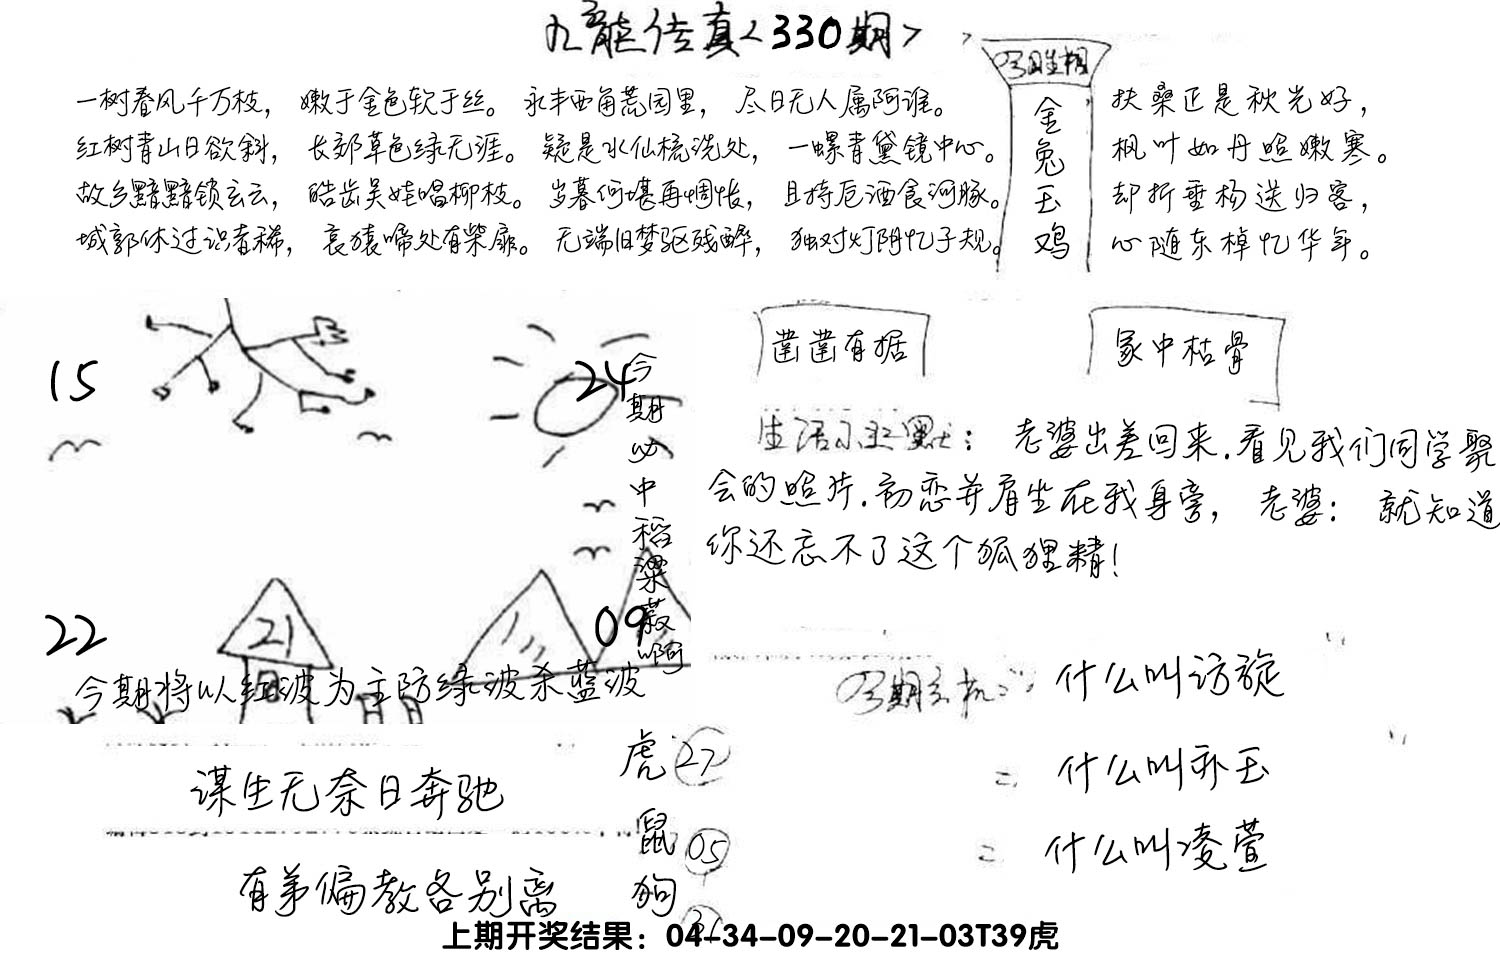 九龙传真<330期>
一树春风千万枝，嫩于金色软于丝。永丰西角荒园里，尽日无人属阿谁。
红树青山日欲斜，长郊草色绿无涯。疑是水仙梳洗处，一螺青黛镜中心。
故乡黯黯锁玄云，皓齿吴娃唱柳枝。岁暮何堪再惆怅，且持卮酒食河豚。
城郭休过识者稀，哀猿啼处有柴扉。无端旧梦驱残醉，独对灯阴忆子规。
金兔玉鸡
扶桑正是秋光好，
枫叶如丹照嫩寒。
却折垂杨送归客，
心随东棹忆华年。
15
24
22
21
09
今期必中稻粱菽啊
今期将以红波为主防绿波杀蓝波
凿凿有据
冢中枯骨
生活小幽默：老婆出差回来.看见我们同学聚
会的照片.初恋并肩坐在我身旁，老婆：就知道
你还忘不了这个狐狸精！
什么叫访旋
二 什么叫卧玉
二 什么叫凌萱
谋生无奈日奔驰
有弟偏教各别离
虎 27
鼠 05
狗 31
上期开奖结果：04-34-09-20-21-03T39虎